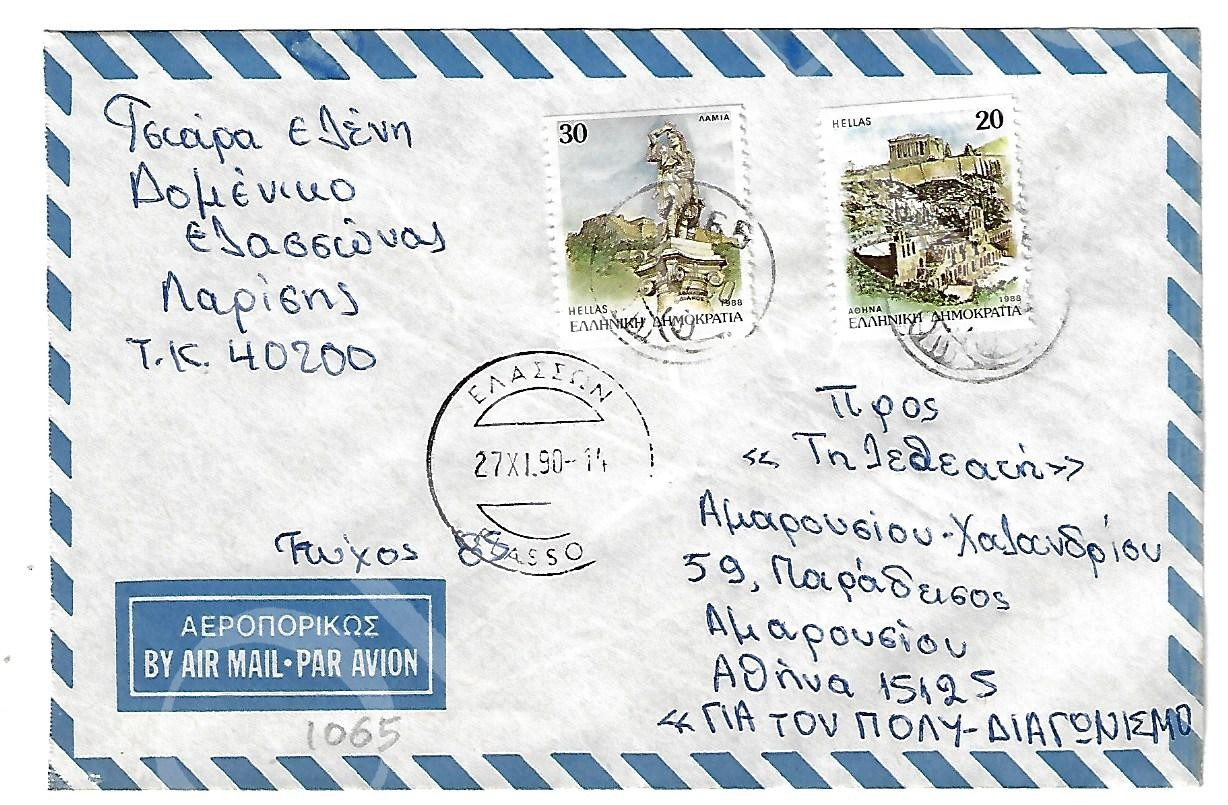 Τσιάρα Ελένη
Δομένικο
Ελασσώνας
Λαρίσης
Τ.Κ. 40200
30 ΛΑΜΙΑ
ΔΙΑΚΟΣ
HELLAS 1988
ΕΛΛΗΝΙΚΗ ΔΗΜΟΚΡΑΤΙΑ
HELLAS 20
ΑΘΗΝΑ 1988
ΕΛΛΗΝΙΚΗ ΔΗΜΟΚΡΑΤΙΑ
ΕΛΑΣΣΩΝ
27XI.90-14
ASSO
Προς
«Τηλεθεατή»
Αμαρουσίου-Χαλανδρίου
59, Παράδεισος
Αμαρουσίου
Αθήνα 15125
«ΓΙΑ ΤΟΝ ΠΟΛΥ-ΔΙΑΓΩΝΙΣΜΟ
Τεύχος
ΑΕΡΟΠΟΡΙΚΩΣ
BY AIR MAIL·PAR AVION
1065